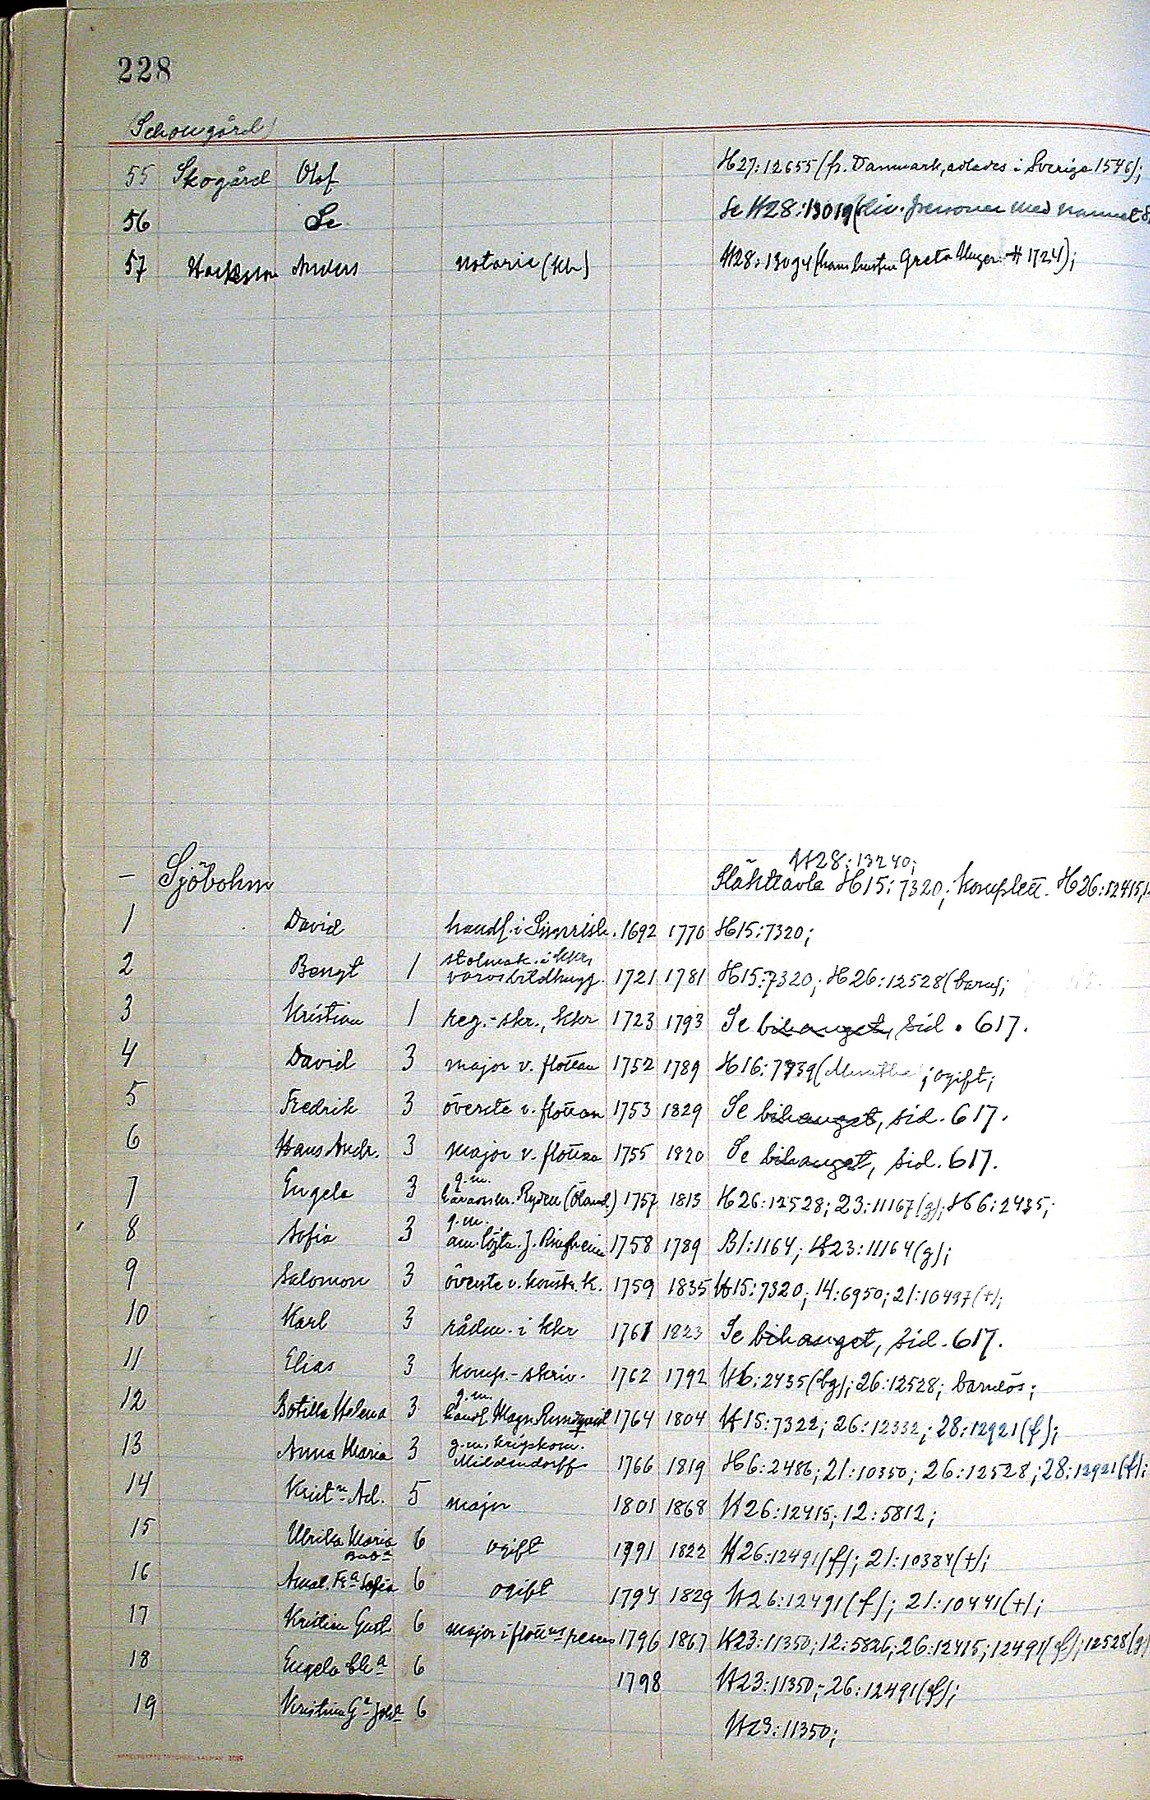 228
(Schougård)
55 Skogård Olof H27:12655 (fr. Danmark, adlades i Sverige 1546);
56 Se Se H28:13019 (div. personer med namnet
57 Anders notarie (Kh) H28:13094 (hans hustru Greta Unger # 1724);
H28:13240;
— Sjöbohm Släkttavla H15:7320; komplett. H26:12415,
1 David handl. i Simrish. 1692 1770 H15:7320;
2 Bengt 1 stolmak. i Kkr, 1721 1781 H15:7320; H26:12528 (barn);
varvsbildhugg.
3 Kristian 1 reg.-skr., Kkr 1723 1793 Se bihanget, sid. 617.
4 David 3 major v. flottan 1752 1789 H16:7739 ; ogift;
5 Fredrik 3 överste v. flottan 1753 1829 Se bihanget, sid. 617.
6 Hans Andr. 3 major v. flottan 1755 1820 Se bihanget, sid. 617.
7 Engela 3 g.m. Rydén (Öland.) 1757 1813 H26:12528; 23:11167 (g); H6:2435;
8 Sofia 3 g.m. am.löjtn. J. 1758 1789 B1:1164; H23:11164 (g);
9 Salomon 3 överste v. konstr. k. 1759 1835 H15:7320; 14:6950; 21:10497 (+);
10 Karl 3 rådm. i Kkr 1761 1823 Se bihanget, sid. 617.
11 Elias 3 komp.-skriv. 1762 1792 H6:2435 (bg); 26:12528; barnlös;
12 Botilla Helena 3 g.m. handl. Magn. Rundquist 1764 1804 H15:7322; 26:12332; 28:12921 (f);
13 Anna Maria 3 g.m. krigskom. 1766 1819 H6:2486; 21:10350; 26:12528; 28:12921 (f);
Mildendorff
14 Krist:n Ad. 5 major 1801 1868 H26:12415; 12:5812;
15 Ulrika Maria 6 ogift 1791 1822 H26:12491 (f); 21:10384 (+);
16 Amal. Fr:a Sofia 6 ogift 1794 1829 H26:12491 (f); 21:10441 (+);
17 Kristian Gust. 6 major i flott:ns 1796 1867 H23:11350; 12:5826; 26:12415; 12491 (f); 12528 (g)
18 Engela Ch:a 6 1798 H23:11350; 26:12491 (f);
19 Kristina G:a Joh:a 6 H23:11350;